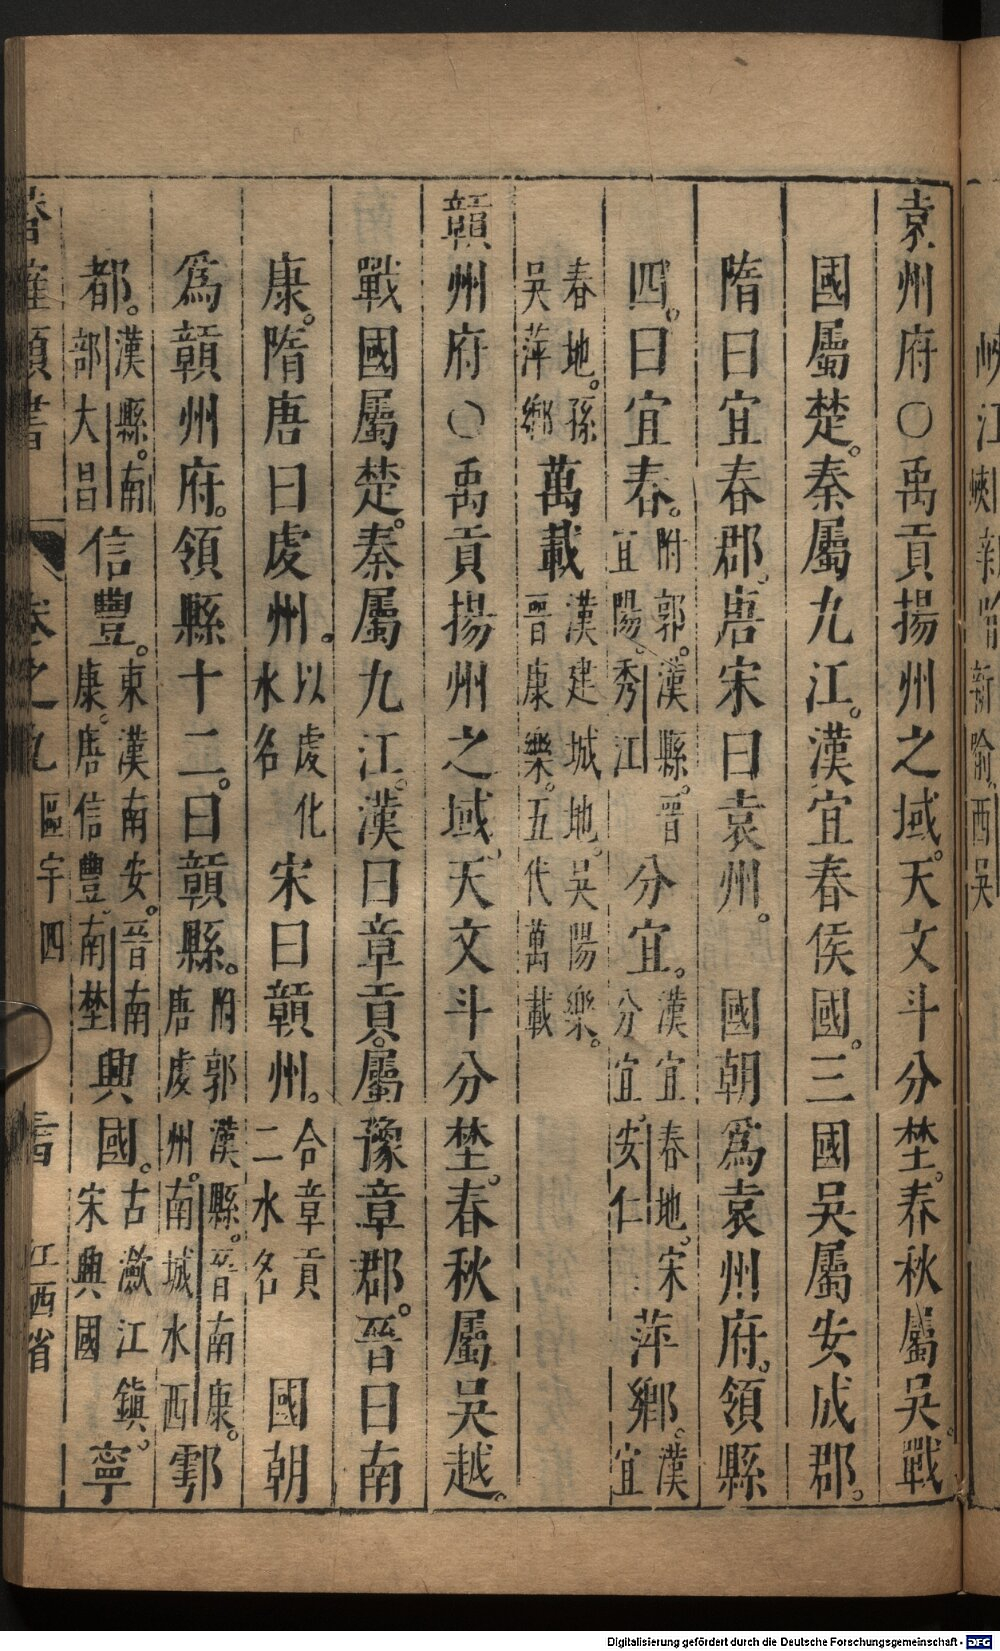 袁州府○禹貢揚州之域。天文斗分埜。春秋屬吳。戰
國屬楚。秦屬九江。漢宜春侯國。三國吳屬安成郡。
隋曰宜春郡。唐宋曰袁州。 國朝爲袁州府。領縣
四。曰宜春。附郭。漢縣。晉宜陽。秀江分宜。漢宜春地。宋分宜。安仁萍鄉。漢宜
春地。孫吳萍鄉萬載漢建城地。吳陽樂。晉康樂。五代萬載
贛州府○禹貢揚州之域。天文斗分埜。春秋屬吳越。
戰國屬楚。秦屬九江。漢曰章貢。屬豫章郡。晉曰南
康。隋唐曰虔州。以虔化水名宋曰贛州。合章貢二水名 國朝
爲贛州府。領縣十二。曰贛縣。附郭漢縣。晉南康。唐虔州。南城水西雩
都。漢縣。南部大昌信豐。東漢南安。晉南康。唐信豐。南埜興國。古瀲江鎮。宋興國寧
卷之九 區宇四 江西省
峽江
新喻。西吳
Digitalisierung gefördert durch die Deutsche Forschungsgemeinschaft - DFG